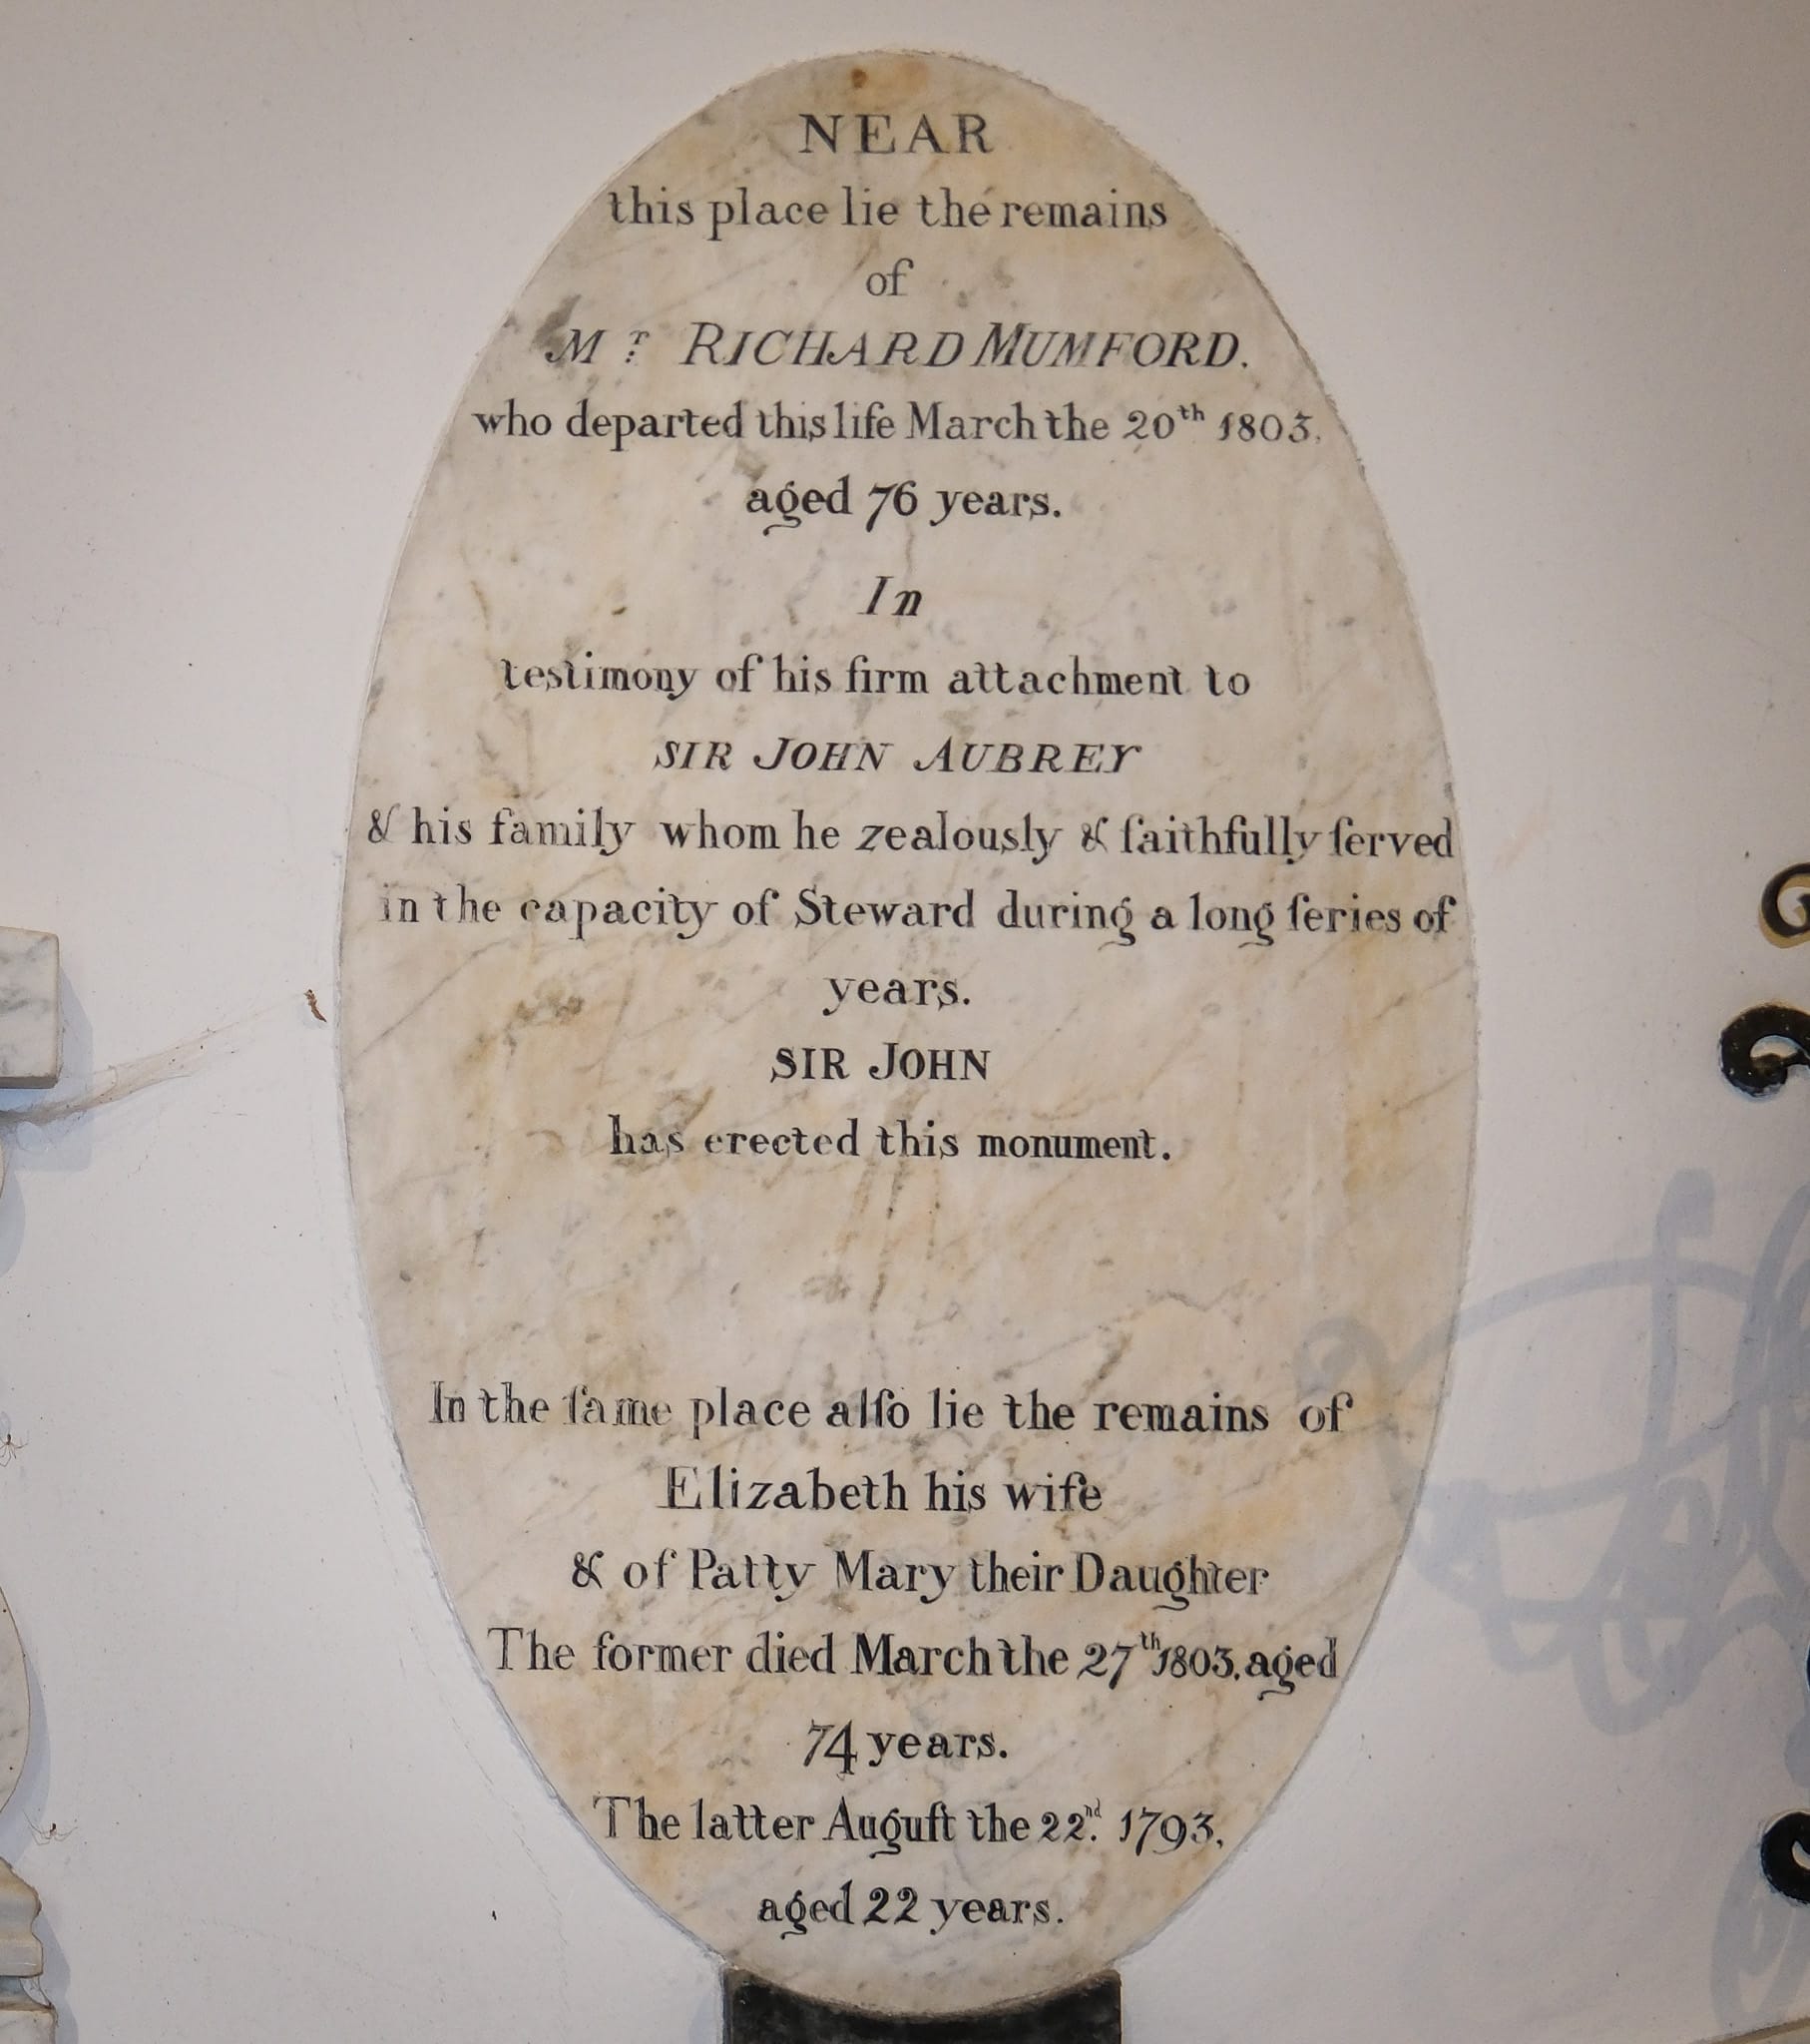 NEAR
this place lie the remains
of
Mr. RICHARD MUMFORD.
who departed this life March the 20th 1803.
aged 76 years.
In
testimony of his firm attachment to
SIR JOHN AUBREY
& his family whom he zealously & faithfully ſerved
in the capacity of Steward during a long ſeries of
years.
SIR JOHN
has erected this monument.
In the ſame place alſo lie the remains of
Elizabeth his wife
& of Patty Mary their Daughter
The former died March the 27th 1803. aged
74 years.
The latter Auguſt the 22nd. 1793.
aged 22 years.